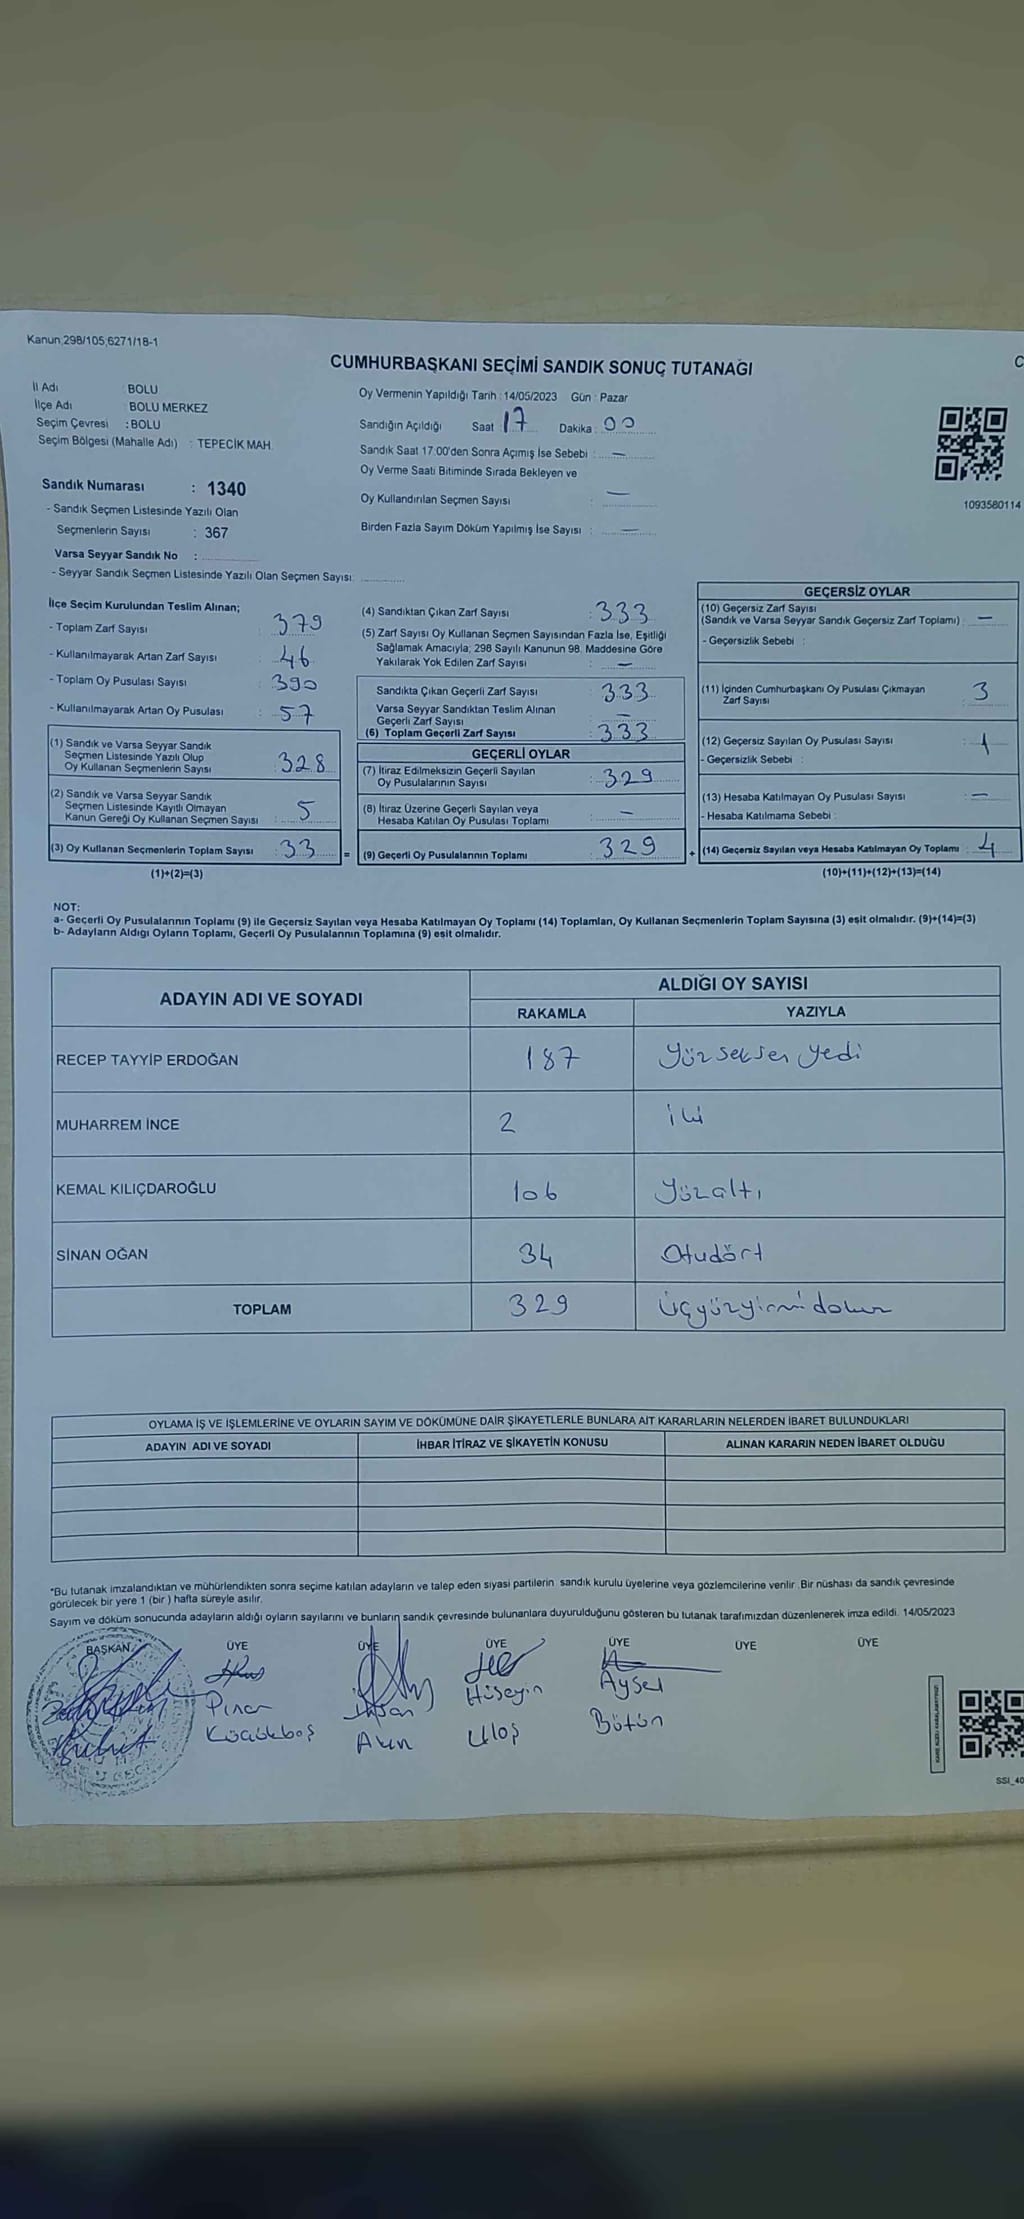 Kanun;298/105;6271/18-1
CUMHURBAŞKANI SEÇİMİ SANDIK SONUÇ TUTANAĞI
C
İl Adı : BOLU
İlçe Adı : BOLU MERKEZ
Seçim Çevresi : BOLU
Seçim Bölgesi (Mahalle Adı) : TEPECİK MAH.
Sandık Numarası : 1340
- Sandık Seçmen Listesinde Yazılı Olan
Seçmenlerin Sayısı : 367
Varsa Seyyar Sandık No :
- Seyyar Sandık Seçmen Listesinde Yazılı Olan Seçmen Sayısı:
Oy Vermenin Yapıldığı Tarih : 14/05/2023 Gün : Pazar
Sandığın Açıldığı Saat : 17 Dakika : 00
Sandık Saat 17:00'den Sonra Açımış İse Sebebi : —
Oy Verme Saati Bitiminde Sırada Bekleyen ve
Oy Kullandırılan Seçmen Sayısı : —
Birden Fazla Sayım Döküm Yapılmış İse Sayısı : —
1093580114
İlçe Seçim Kurulundan Teslim Alınan;
- Toplam Zarf Sayısı : 379
- Kullanılmayarak Artan Zarf Sayısı : 46
- Toplam Oy Pusulası Sayısı : 390
- Kullanılmayarak Artan Oy Pusulası : 57
(1) Sandık ve Varsa Seyyar Sandık
Seçmen Listesinde Yazılı Olup
Oy Kullanan Seçmenlerin Sayısı : 328
(2) Sandık ve Varsa Seyyar Sandık
Seçmen Listesinde Kayıtlı Olmayan
Kanun Gereği Oy Kullanan Seçmen Sayısı : 5
(3) Oy Kullanan Seçmenlerin Toplam Sayısı : 33 =
(1)+(2)=(3)
(4) Sandıktan Çıkan Zarf Sayısı : 333
(5) Zarf Sayısı Oy Kullanan Seçmen Sayısından Fazla İse, Eşitliği
Sağlamak Amacıyla; 298 Sayılı Kanunun 98. Maddesine Göre
Yakılarak Yok Edilen Zarf Sayısı : —
Sandıkta Çıkan Geçerli Zarf Sayısı : 333
Varsa Seyyar Sandıktan Teslim Alınan
Geçerli Zarf Sayısı : —
(6) Toplam Geçerli Zarf Sayısı : 333
GEÇERLİ OYLAR
(7) İtiraz Edilmeksizin Geçerli Sayılan
Oy Pusulalarının Sayısı : 329
(8) İtiraz Üzerine Geçerli Sayılan veya
Hesaba Katılan Oy Pusulası Toplamı : —
(9) Geçerli Oy Pusulalarının Toplamı : 329 +
GEÇERSİZ OYLAR
(10) Geçersiz Zarf Sayısı
(Sandık ve Varsa Seyyar Sandık Geçersiz Zarf Toplamı) : —
- Geçersizlik Sebebi :
(11) İçinden Cumhurbaşkanı Oy Pusulası Çıkmayan
Zarf Sayısı : 3
(12) Geçersiz Sayılan Oy Pusulası Sayısı : 1
- Geçersizlik Sebebi :
(13) Hesaba Katılmayan Oy Pusulası Sayısı : —
- Hesaba Katılmama Sebebi :
(14) Geçersiz Sayılan veya Hesaba Katılmayan Oy Toplamı : 4
(10)+(11)+(12)+(13)=(14)
NOT:
a- Geçerli Oy Pusulalarının Toplamı (9) ile Geçersiz Sayılan veya Hesaba Katılmayan Oy Toplamı (14) Toplamları, Oy Kullanan Seçmenlerin Toplam Sayısına (3) eşit olmalıdır. (9)+(14)=(3)
b- Adayların Aldığı Oyların Toplamı, Geçerli Oy Pusulalarının Toplamına (9) eşit olmalıdır.
ADAYIN ADI VE SOYADI
ALDIĞI OY SAYISI
RAKAMLA YAZIYLA
RECEP TAYYİP ERDOĞAN 187 Yüzseksen yedi
MUHARREM İNCE 2 iki
KEMAL KILIÇDAROĞLU 106 Yüzaltı
SİNAN OĞAN 34 Otudört
TOPLAM 329 Üçyüzyirmi dokuz
OYLAMA İŞ VE İŞLEMLERİNE VE OYLARIN SAYIM VE DÖKÜMÜNE DAİR ŞİKAYETLERLE BUNLARA AİT KARARLARIN NELERDEN İBARET BULUNDUKLARI
ADAYIN ADI VE SOYADI İHBAR İTİRAZ VE ŞİKAYETİN KONUSU ALINAN KARARIN NEDEN İBARET OLDUĞU
*Bu tutanak imzalandıktan ve mühürlendikten sonra seçime katılan adayların ve talep eden siyasi partilerin sandık kurulu üyelerine veya gözlemcilerine verilir. Bir nüshası da sandık çevresinde
görülecek bir yere 1 (bir) hafta süreyle asılır.
Sayım ve döküm sonucunda adayların aldığı oyların sayılarını ve bunların sandık çevresinde bulunanlara duyurulduğunu gösteren bu tutanak tarafımızdan düzenlenerek imza edildi. 14/05/2023
BAŞKAN ÜYE ÜYE ÜYE ÜYE ÜYE ÜYE
Pınar Hüseyin Aysel
Küçükbaş Akın Ulaş Bütün
SSI_40